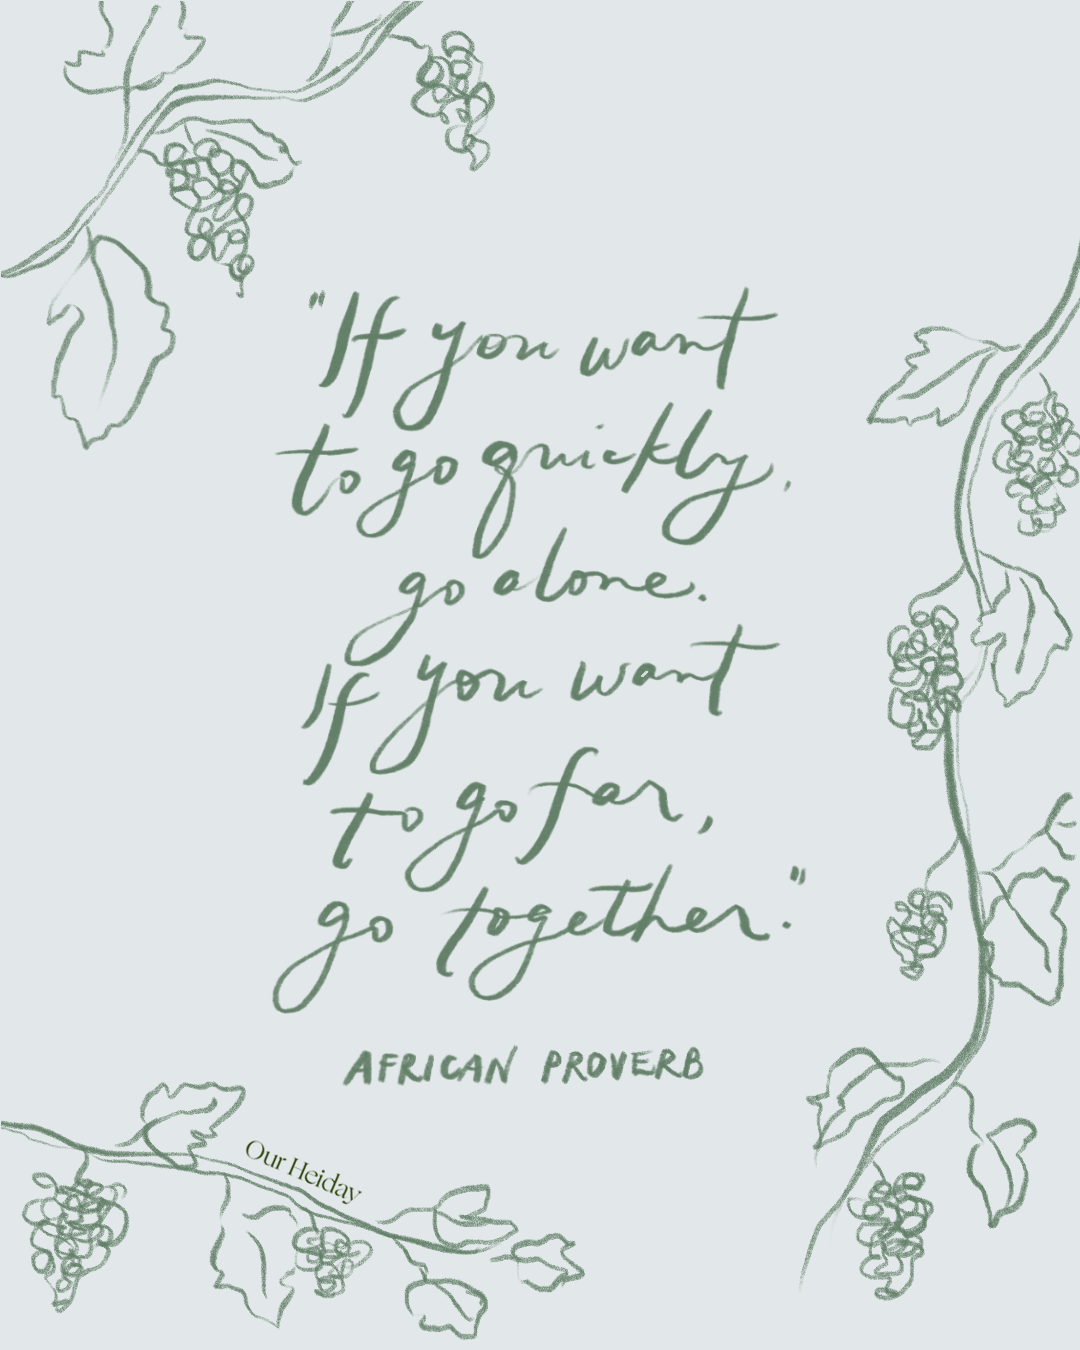 "If you want
to go quickly,
go alone.
If you want
to go far,
go together."
AFRICAN PROVERB
Our Heiday